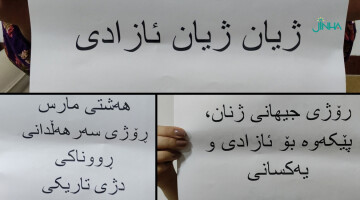 JINHA
ژیان ژیان ئازادی
هەشتی مارس
ڕۆژی سەرهەڵدانی
ڕووناکی
دژی تاریکی
ڕۆژی جیهانی ژنان،
پێکەوە بۆ ئازادی و
یەکسانی